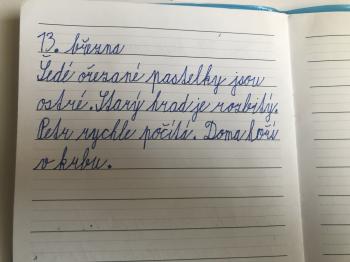 13. března
Šedé ořezané pastelky jsou
ostré. Starý hrad je rozbitý.
Petr rychle počítá. Doma hoří
v krbu.